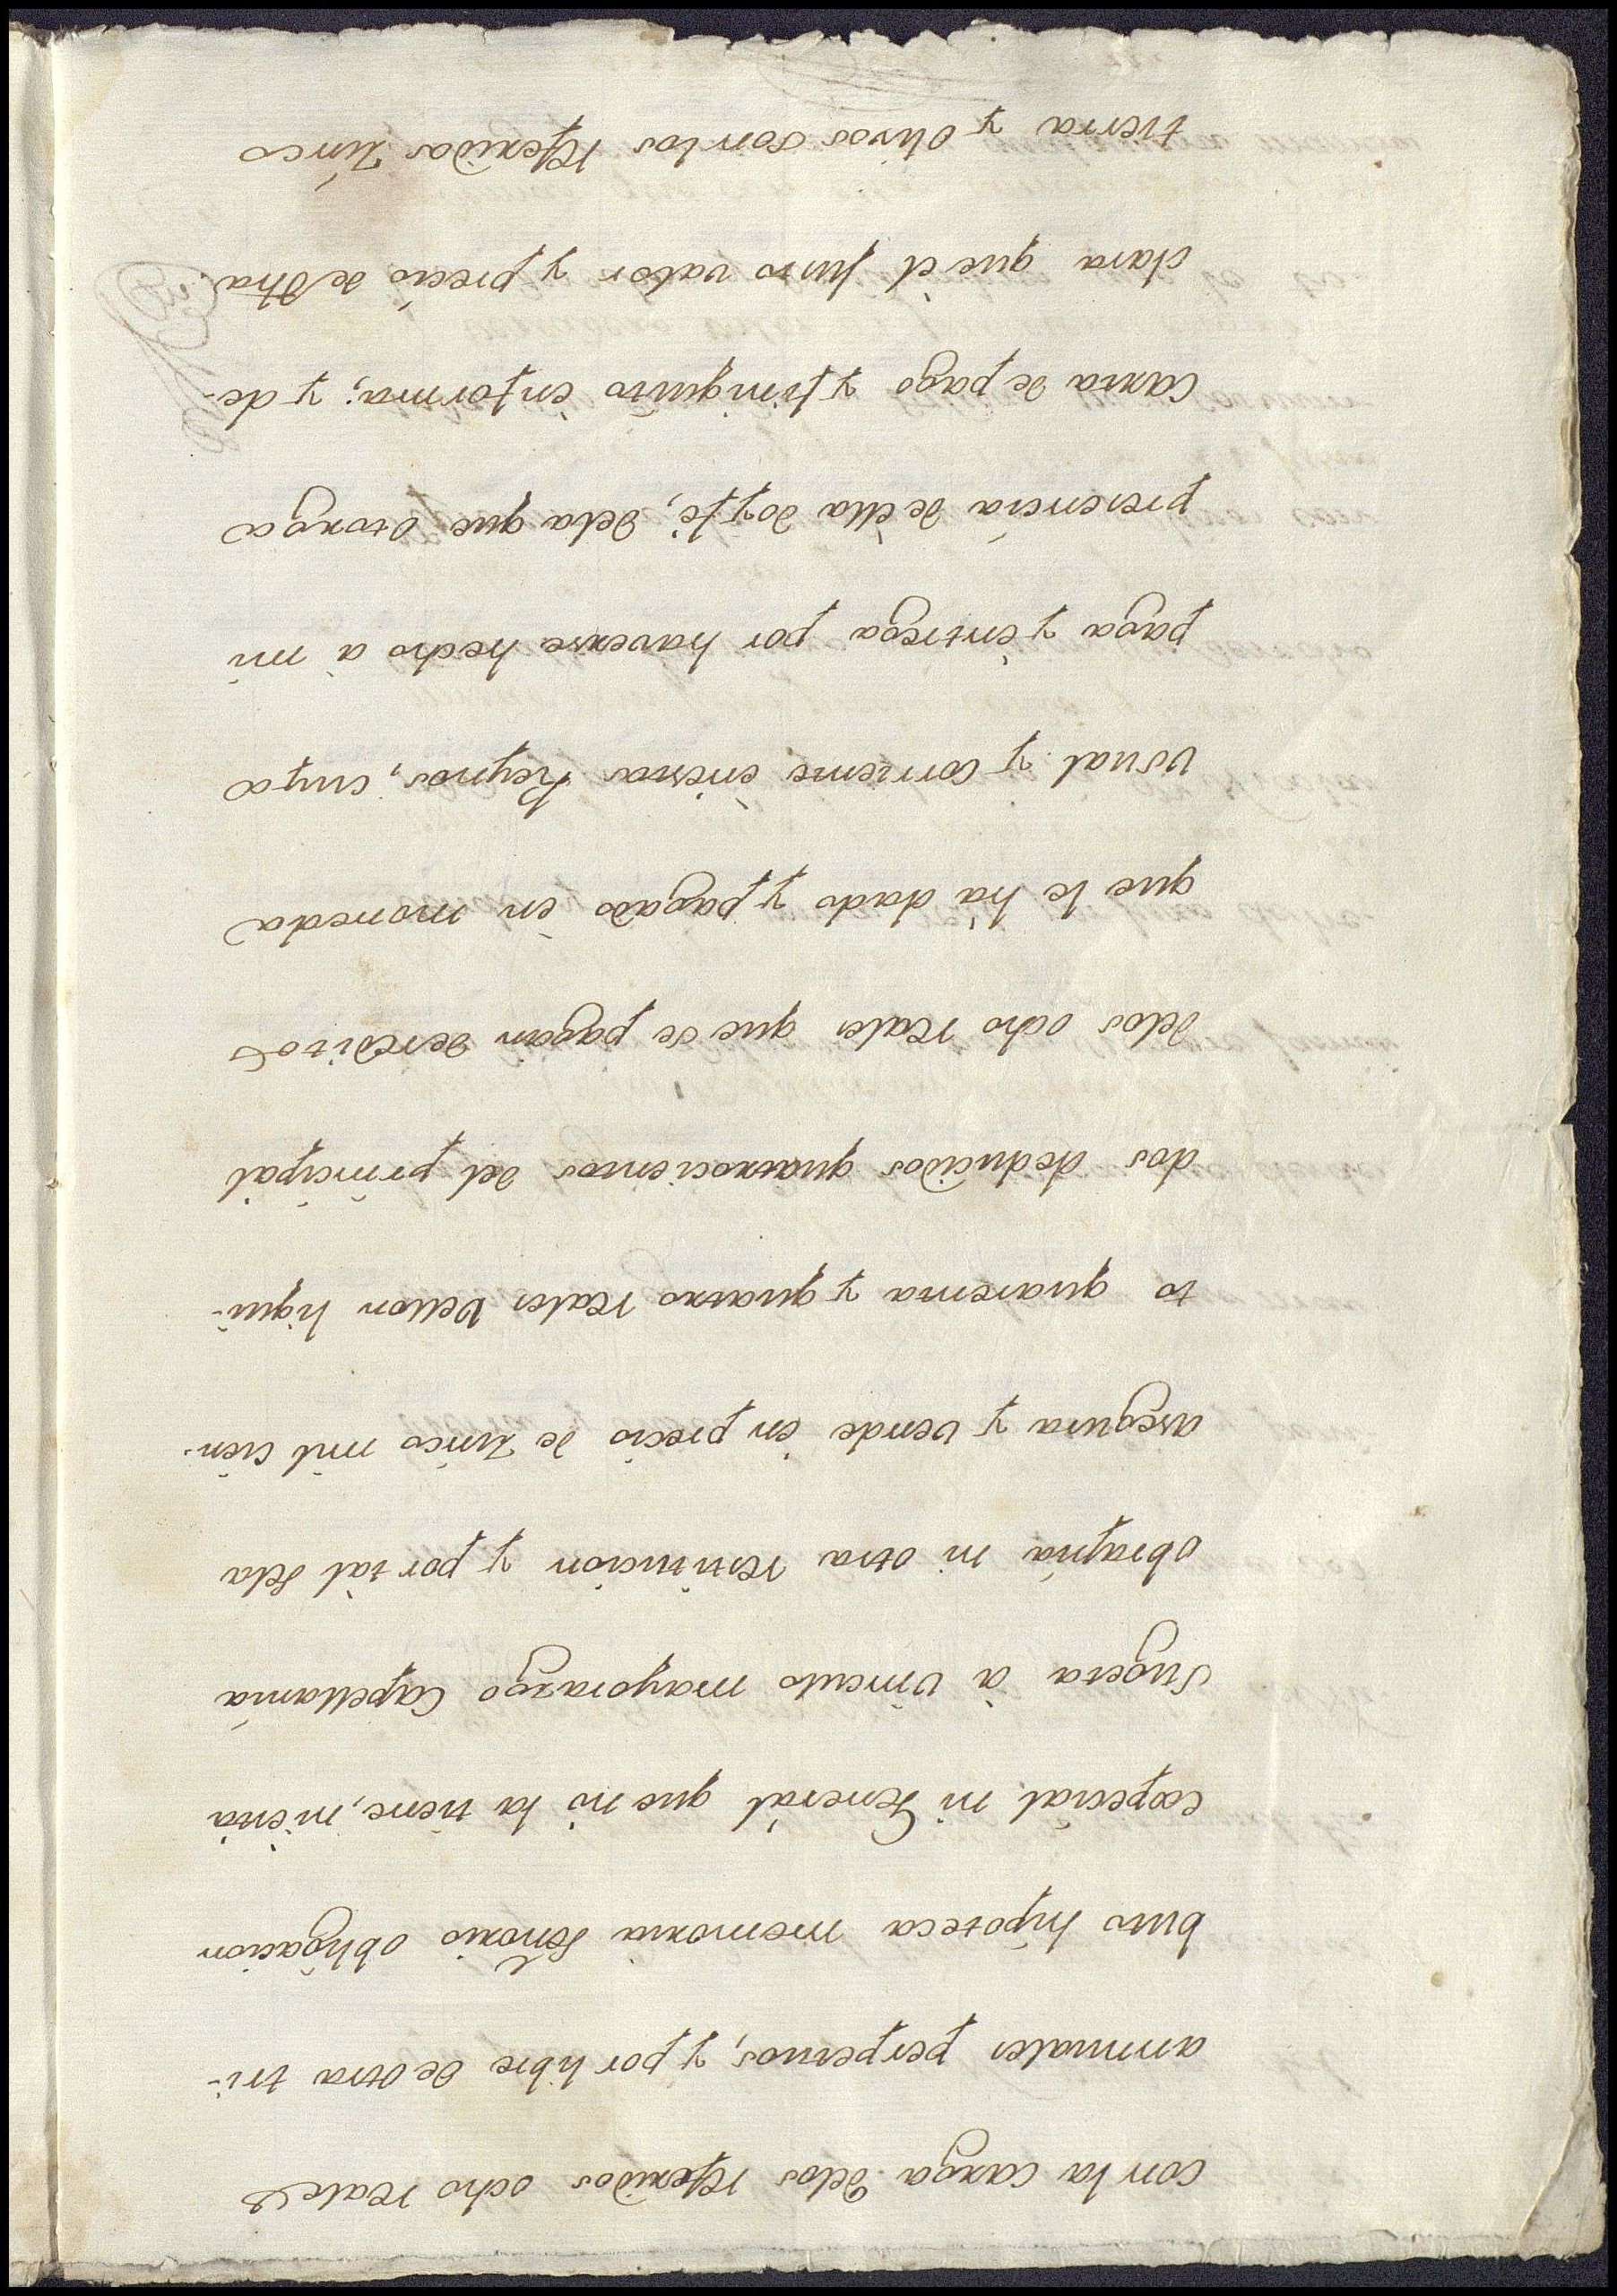 con la carga delos referidos ocho reales
annuales perpetuos, y por libre de otra tri-
buto hipoteca memoria señorio obligacion
especial ni General que ni la tiene, ni està
sugeta à vinculo mayorazgo Capellania
obrapia ni otra restitucion y por tal sela
asegura y vende èn precio de zinco mil cien-
to quarenta y quatro reales vellon liqui-
dos deducidos quatrocientos del principal
delos ocho reales que se pagan de reditos
que le ha dado y pagado èn moneda
vsual y corriente ènestos Reynos, cuya
paga y èntrega por haverse hecho à mi
presencia de èlla doy fè, dela que otorga
carta de pago y finiquito ènforma; y de-
clara que èl justo valor y precio de dha
tierra y olivos son los referidos zinco